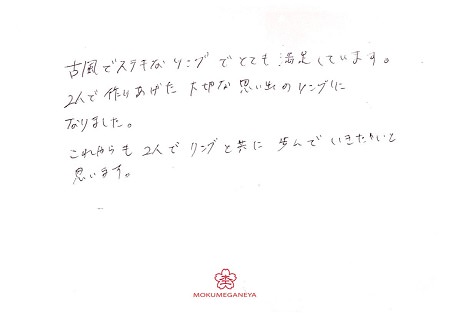 古風でステキなリングでとても満足しています。
2人で作りあげた大切な思い出のリングに
なりました。
これからも2人でリングと共に歩んでいきたいと
思います。
MOKUMEGANEYA